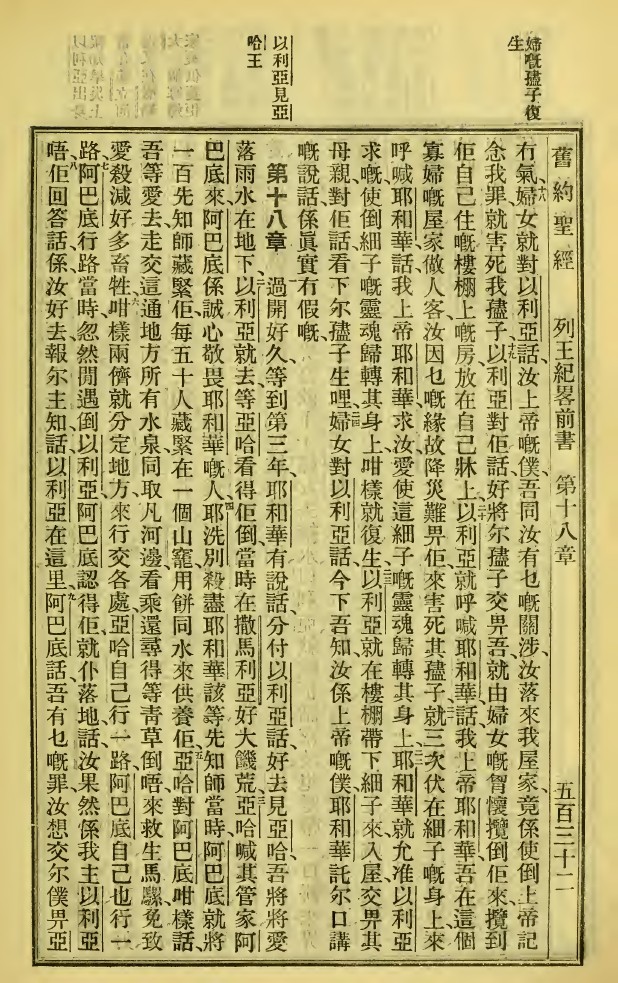 婦嘅孻子復
生
以利亞見亞
哈王
舊約聖經 列王紀畧前書 第十八章 五百三十二
冇氣、十八婦女就對以利亞話、汝上帝嘅僕、吾同汝有乜嘅關涉、汝落來我屋家、竟係使倒上帝記
念我罪、就害死我孻子、十九以利亞對佢話、好將尔孻子交畀吾、就由婦女嘅胷懷攬倒佢來、攬到
佢自己住嘅樓棚上嘅房、放在自己牀上、二十以利亞就呼喊耶和華、話、我上帝耶和華、吾在這個
寡婦嘅屋家做人客、汝因乜嘅緣故降災難畀佢、來害死其孻子、就三次伏在細子嘅身上、來
呼喊耶和華、話、我上帝耶和華、求汝愛使這細子嘅靈魂歸轉其身上、耶和華就允准以利亞
求嘅、使倒細子嘅靈魂歸轉其身上、咁樣就復生、以利亞就在樓棚帶下細子來、入屋、交畀其
母親、對佢話、看下尔孻子生哩、婦女對以利亞話、今下吾知汝係上帝嘅僕、耶和華託尔口講
嘅說話係眞實冇假嘅、
第十八章 過開好久、等到第三年、耶和華有說話分付以利亞、話、好去見亞哈、吾將將愛
落雨水在地下、二以利亞就去、等亞哈看得佢倒、當時在撒馬利亞好大饑荒、三亞哈喊其管家阿
巴底來、阿巴底係誠心敬畏耶和華嘅人、四耶洗別殺盡耶和華該等先知師當時、阿巴底就將
一百先知師藏緊佢、每五十人藏緊在一個山窿、用餅同水來供養佢、五亞哈對阿巴底咁樣話、
吾等愛去走交這通地方所有水泉、同取凡河邊、看乘還尋得等青草倒唔、來救生馬騾、免致
愛殺減好多畜牲、六咁樣兩儕就分定地方、來行交各處、亞哈自己行一路、阿巴底自己也行一
路、七阿巴底行路當時、忽然閒遇倒以利亞、阿巴底認得佢、就仆落地、話、汝果然係我主以利亞
唔、八佢回答話、係、汝好去報尔主知、話、以利亞在這里、九阿巴底話、吾有乜嘅罪、汝想交尔僕畀亞